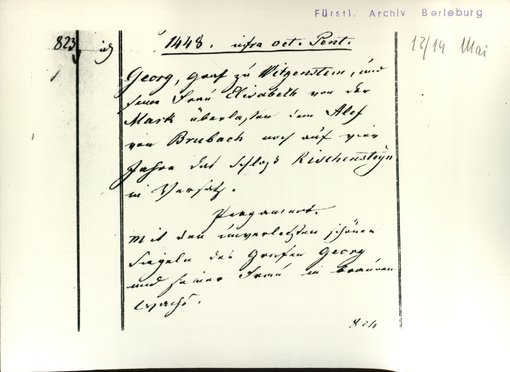 Fürstl. Archiv Berleburg
823
1448. infra oct. Pent.
12/19 Mai
Georg, Graf zu Witgenstein, und
seine Frau Elisabeth von der
Mark überlassen dem Alef
von Brubach noch auf vier
Jahre das Schloß Rischensteyn
in Versatz.
Pergament.
Mit den unverletzten schönen
Siegeln des Grafen Georg
und seiner Frau in braunem
Wachs.